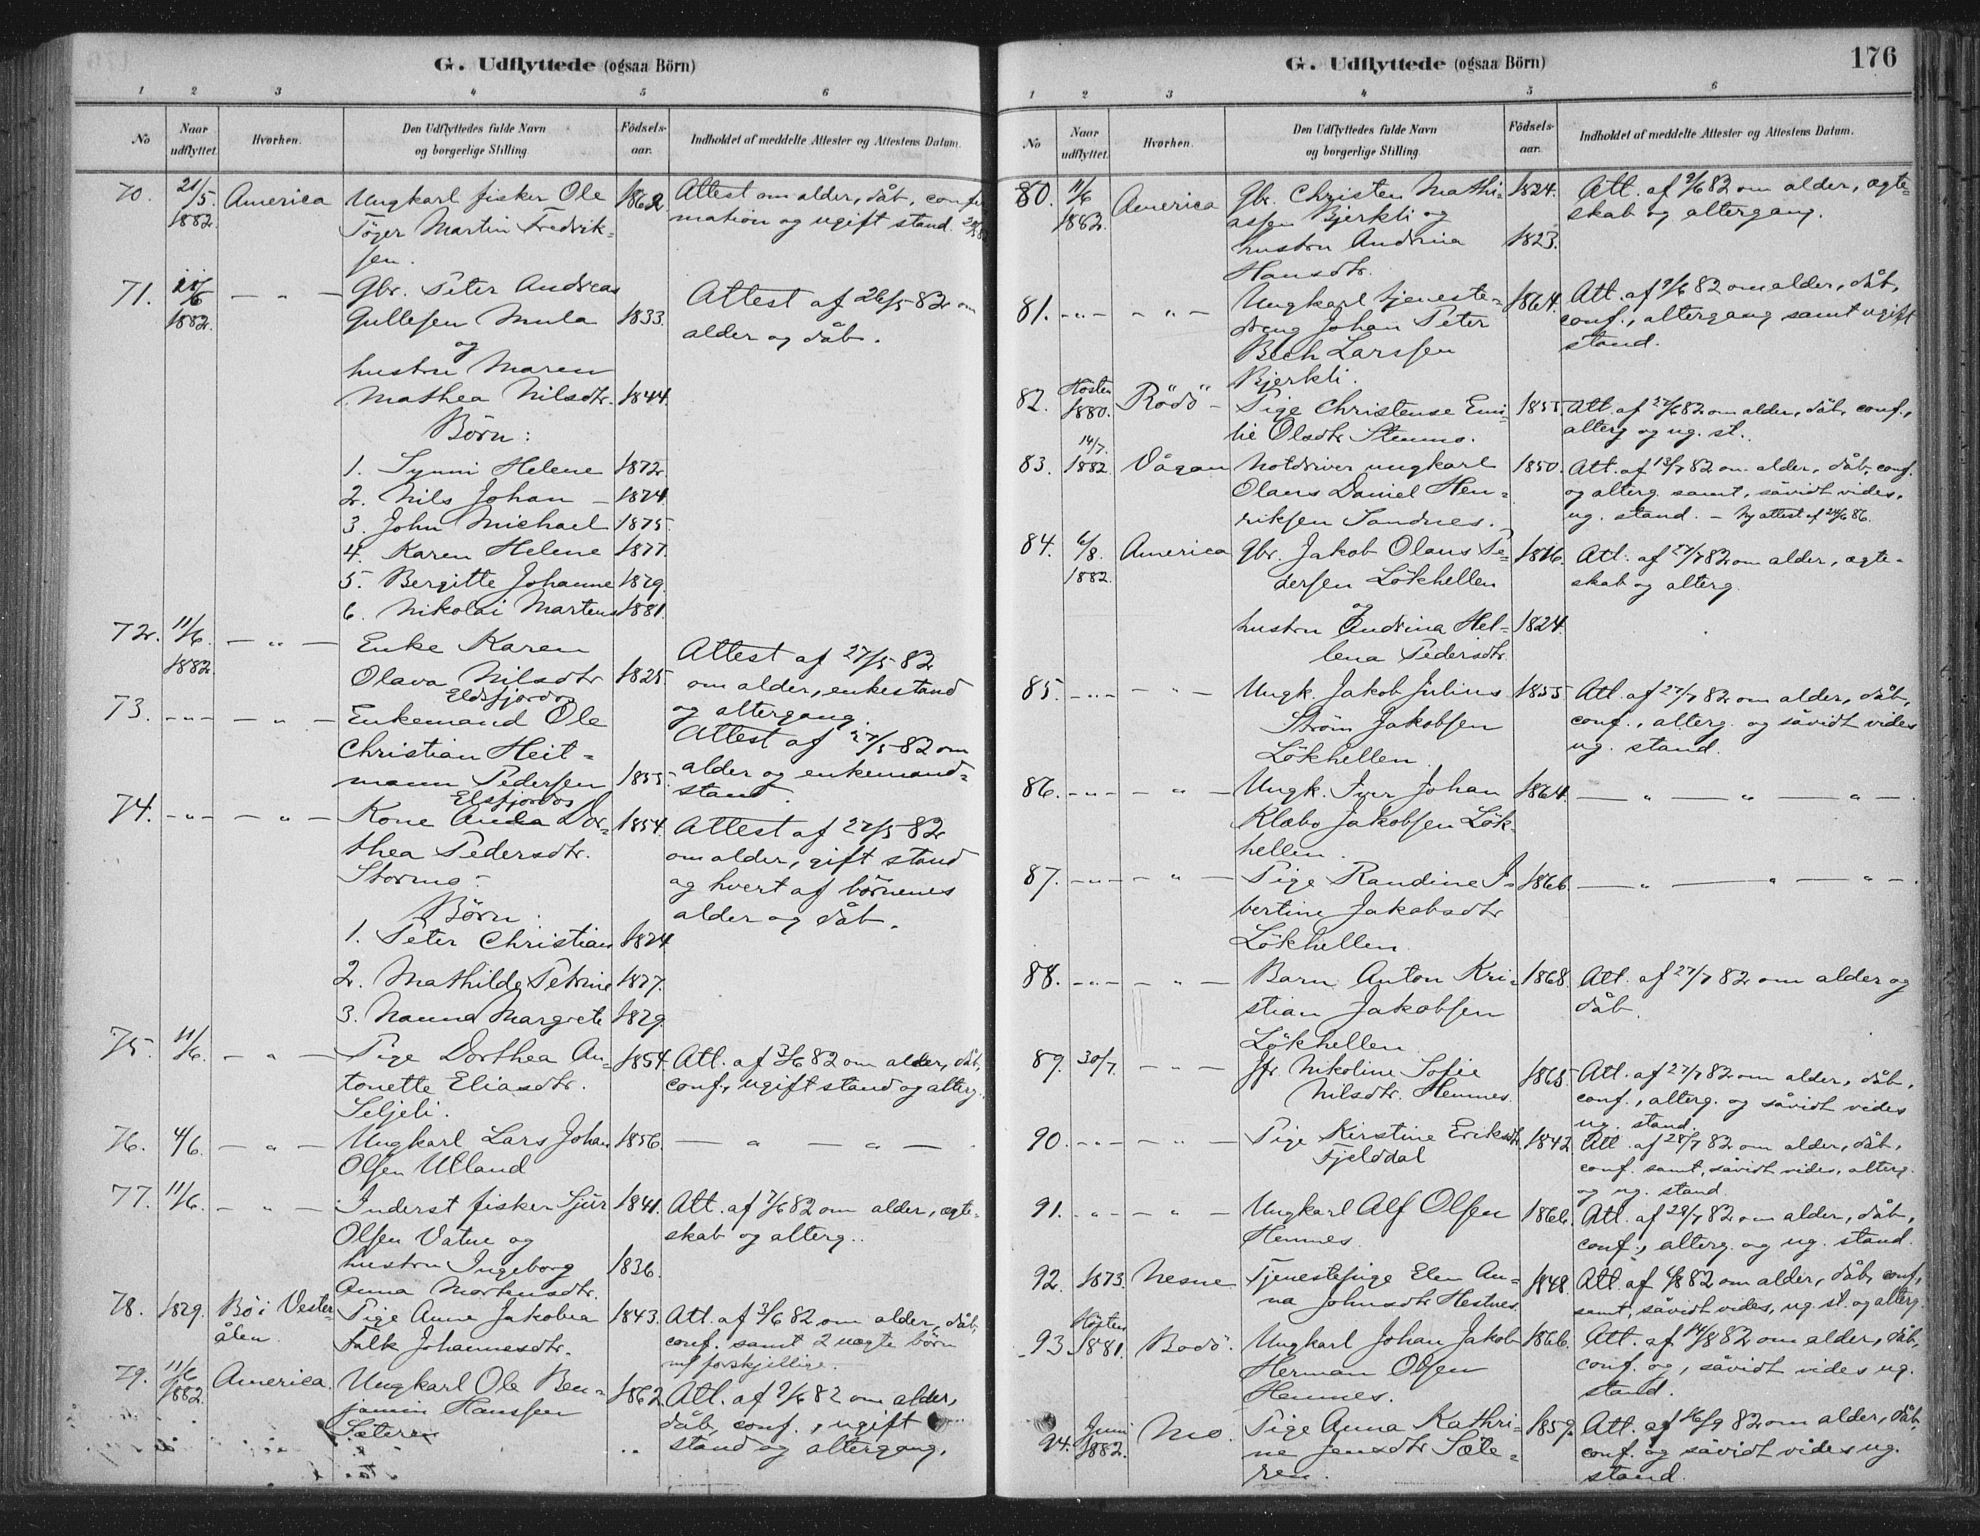 G. Udflyttede (ogsaa Börn)
1 2 3 4 5 6
No
Naar udflyttet.
Hvorhen.
Den Udflyttedes fulde Navn og borgerlige Stilling.
Födsels-aar.
Indholdet af meddelte Attester og Attestens Datum.
70. 21/5 1882 America Ungkarl fisker Ole 1862 Attest om alder, dåb, confir
Töger Martin Fredrik- mation og ugift stand.
sen.
71. 1882 — „ — Gbr. Peter Andreas
Gullesen Mula 1833. Attest af 26/5 82 om
og alder og dåb.
hustru Maren
Mathea Nilsdtr. 1844.
Börn:
1. Synni Helene 1872
2. Nils Johan — 1874
3. John Michael 1875.
4. Karen Helene 1877.
5. Bergitte Johanne 1879.
6. Nikolai Martens 1881.
72. 11/6 1882 — „ — Enke Karen
Olava Nilsdtr 1825. Attest af 27/5 82
Eldsfjorden om alder, enkestand
og altergang.
73. — „ — — „ — Enkemand Ole
Christian Heit- Attest af 27/5 82 om
mann Pedersen 1855. alder og enkemand-
Elsfjorden stand.
74. — „ — — „ — Kone Anda Dor- 1854. Attest af 27/5 82
thea Pedersdtr. om alder, gift stand
Stormo. og hvert af börnenes
Börn: alder og dåb.
1. Peter Christian 1874
2. Mathilde Petrine 1877.
3. Nanna Margrete 1879.
75. 11/6. — „ — Pige Dorthea An- 1854. Att. af 3/6 82 om alder, dåb,
tonette Eliasdtr. conf., ugift stand og alterg..
Seljeli.
76. 4/6. — „ — Ungkarl Lars Johan 1856. — „ — „ — .
Olsen Utland
77. 11/6. — „ — Inderst fisker Sjur 1841. Att. af 7/6 82 om alder, ægte-
Olsen Vatne og skab og alterg..
hustru Ingeborg 1836.
Anna Mortensdtr.
78. 1879. Bö i Vester- Pige Anne Jakobea 1843. Att. af 3/6 82 om alder, dåb,
ålen. Falk Johannesdtr. conf. samt 2 uægte börn
m/ forskjellige.
79. 11/6 1882. America. Ungkarl Ole Ben- 1862 Att. af 9/6 82 om alder,
jamin Hanssen dåb, conf., ugift
Sæteren stand og altergang.
G. Udflyttede (ogsaa Börn)
176
1 2 3 4 5 6
No
Naar udflyttet.
Hvorhen.
Den Udflyttedes fulde Navn og borgerlige Stilling.
Födsels-aar.
Indholdet af meddelte Attester og Attestens Datum.
80. 11/6 1882. America Gbr. Christen Mathi- 1824. Att. af 9/6 82 om alder, ægte-
assen Bjerkli og skab og altergang.
hustru Andrina 1823.
Hansdtr.
81. — „ — — „ — Ungkarl tjeneste- 1864. Att. af 9/6 82 om alder, dåb,
dreng Johan Peter conf., altergang samt ugift
Bech Larssen stand.
Bjerkli.
82. Hösten 1880. Rödö — Pige Christense Emi- 1855. Att. af 27/6 82 om alder, dåb, conf.,
lie Olsdtr Stenmo. alterg og ug. st..
83. 14/7. 1882 Vågan Notdriver ungkarl 1850. Att. af 13/7 82 om alder, dåb, conf.
Olaus Daniel Hen- og alterg. samt, såvidt vides,
riksen Sandnes. ug. stand. — Ny attest af 24/6 86.
84. 6/8. 1882. America Gbr. Jakob Olaus Pe- 1816. Att. af 27/7 82 om alder, ægte-
dersen Lökhellen skab og alterg.
og
hustru Andrina Hel- 1824.
lena Pedersdtr.
85. — „ — — „ — Ungk. Jakob Julius 1855 Att. af 27/7 82 om alder, dåb,
Ström Jakobsen conf., alterg. og såvidt vides
Lökhellen. ug. stand.
86. — „ — — „ — Ungk. Iver Johan 1864. — „ — „ — „ — .
Klæbo Jakobsen Lök-
hellen.
87. — „ — — „ — Pige Randine I- 1866. — „ — „ — „ — .
bertine Jakobsdtr
Lökhellen.
88. — „ — — „ — Barn Anton Kri- 1868. Att. af 27/7 82 om alder og
stian Jakobsen dåb.
Lökhellen
89. 30/7. — „ — Jfr Nikoline Sofie 1865. Att. af 27/7 82 om alder, dåb,
Nilsdtr. Hemnes. conf., alterg. og såvidt vides
ug. stand.
90. — „ — — „ — Pige Kirstine Eriksdtr. 1842. Att af 28/7 82 om alder, dåb,
Fjelddal conf. samt, såvidt vides, alterg.
og ug. stand.
91. — „ — — „ — Ungkarl Alf Olsen 1866. Att. af 28/7 82 om alder, dåb,
Hemnes. conf., alterg. og ug. stand.
92. 1873. Nesne Tjenestepige Elen An- 1848. Att. af 6/8 82 om alder, dåb, conf,
na Johnsdtr Hestnes. samt, såvidt vides, ug. st. og alterg.
93. Hösten 1881. Bodö. Ungkarl Johan Jakob 1866. Att. af 14/8 82 om alder, dåb,
Herman Olsen conf. og, såvidt vides ug.
Hemnes. stand.
94. Juni 1882. Mo. Pige Anna Kathri- 1859. Att. af 16/9 82 om alder, dåb
ne Jensdtr Sæte- conf. og såvidt vides ug.
ren. stand.